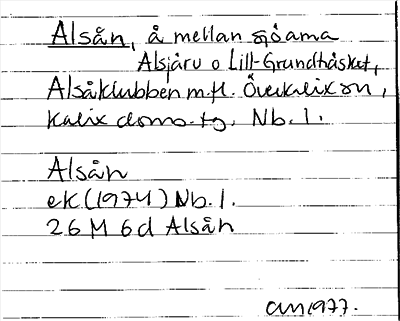 Alsån, å mellan sjöarna
Alsjärv o Lill-Grundträsket,
Alsåklubben m.fl. Överkalix sn,
Kalix doms. tg. Nb. l.
Alsån
ek (1974) Nb. l.
26 M 6d Alsån
AM 1977.